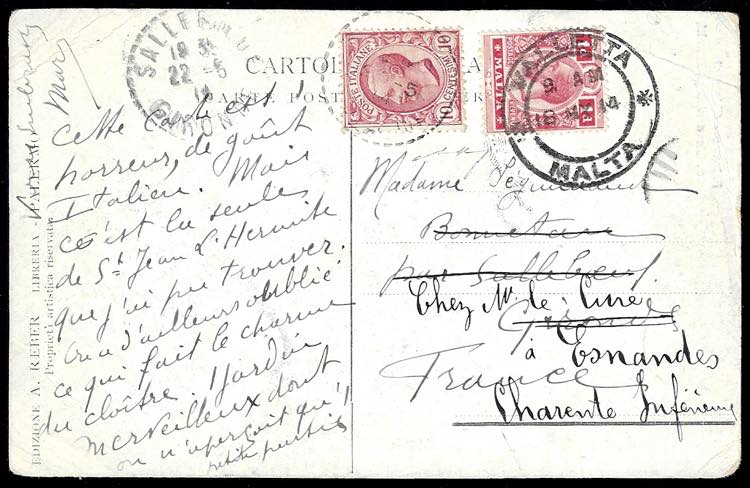 CARTOLINA
CARTE POSTALE
SALLEBŒUF
22 -5
14
GIRONDE
POSTE ITALIANE
CENTESIMI 10
POSTAGE
MALTA
1d
VALLETTA
9 AM
18 MY 14
MALTA
EDIZIONE A. REBER LIBRERIA - PALERMO
Proprietà artistica riservata.
Cette carte est l'
horreur, de goût
Italien. Mais
c'est la seule
de St Jean l'Hermite
que j'ai pu trouver.
on a d'ailleurs oublié
ce qui fait le charme
du cloître 1 jardin
merveilleux dont
on n'aperçoit qu'1
petite partie
Madame
Bonnetan
par Sallebœuf
Gironde
France
Chez Mr le Curé
à Esnandes
Charente Inférieure